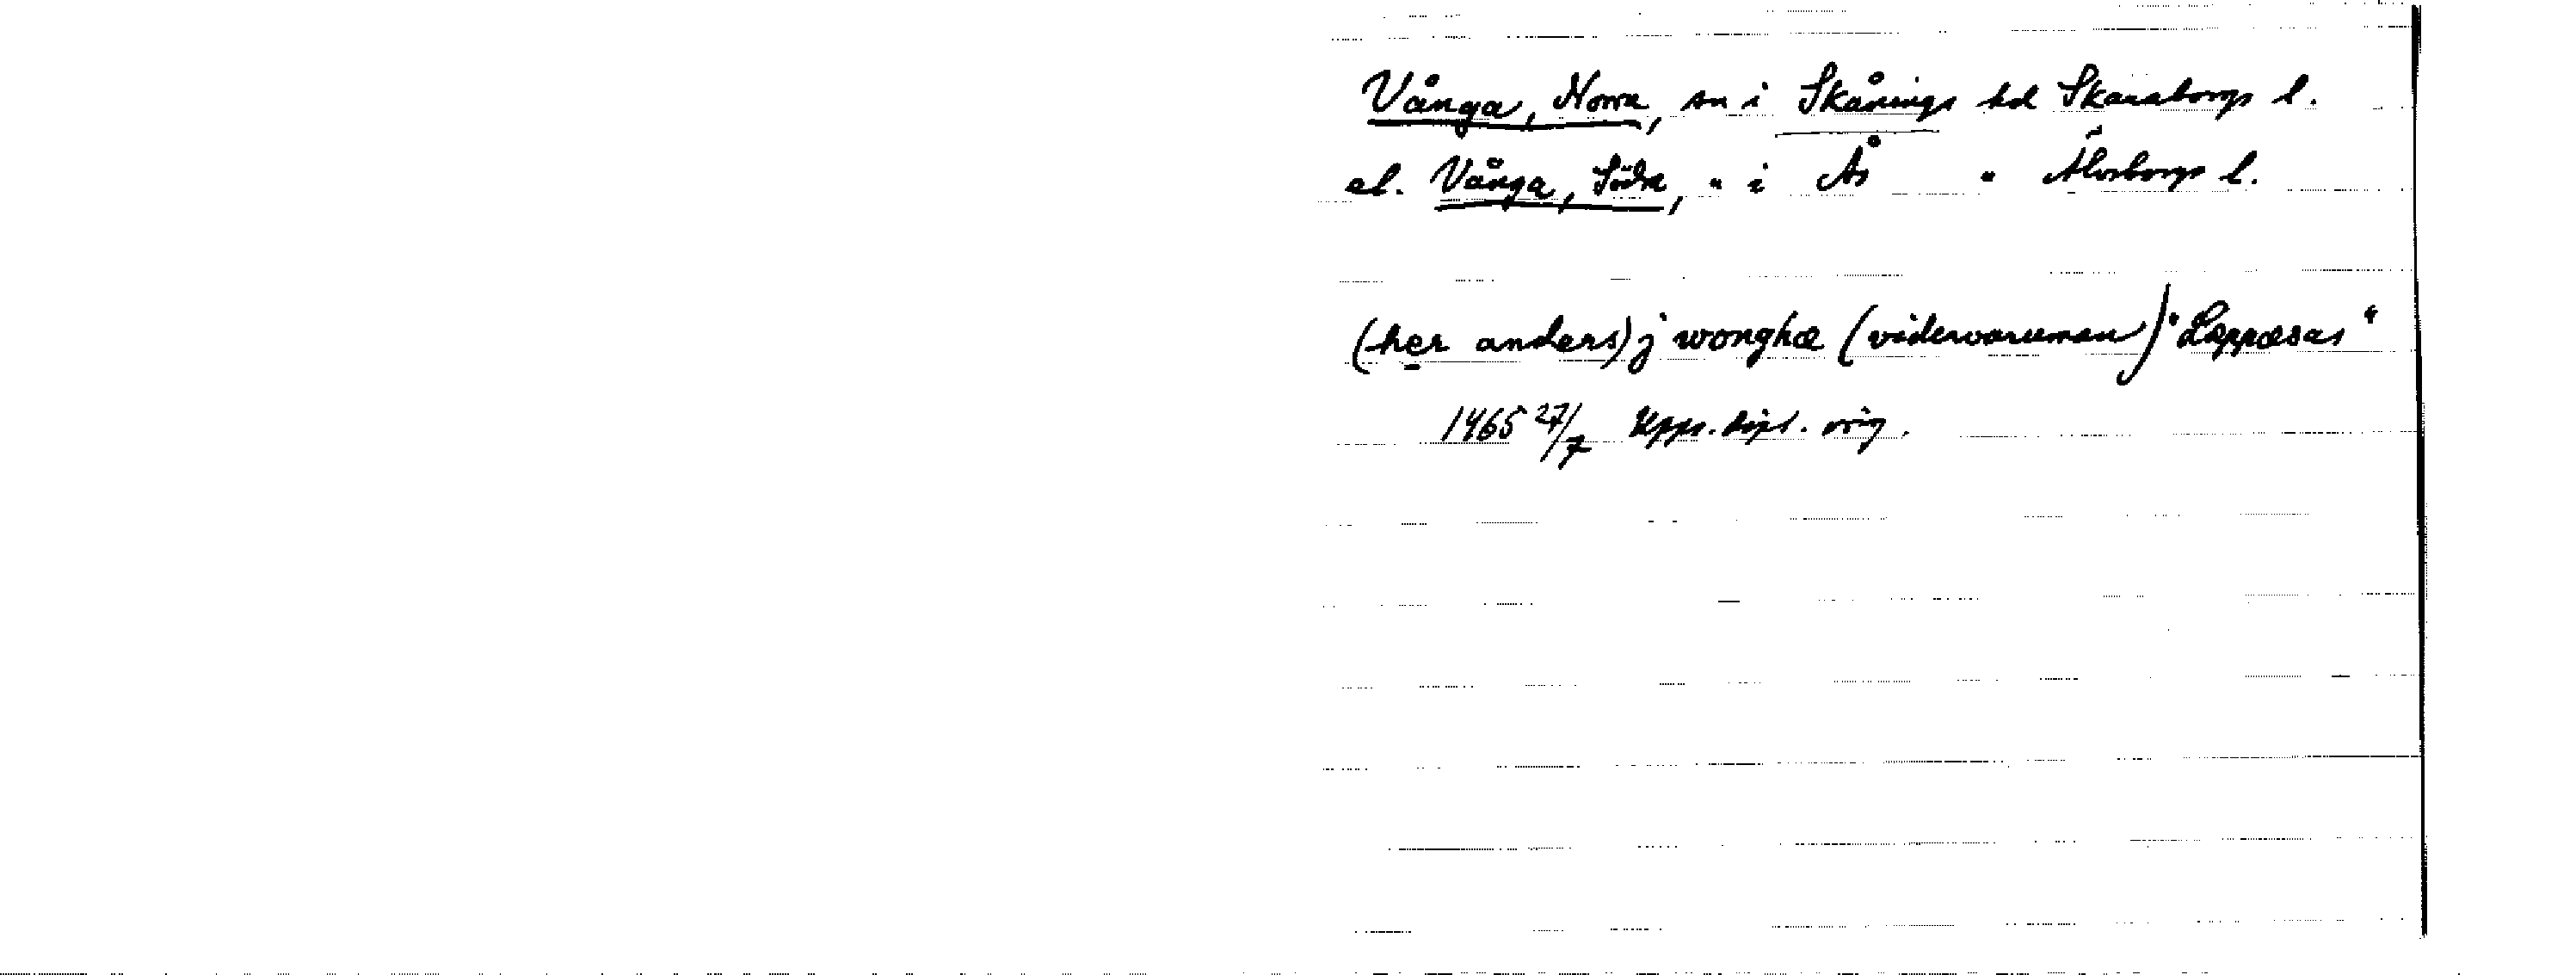 Vånga, Norra, sn i Skånings hd Skaraborgs l.
el. Vånga, Södra, " i Ås " Älvsborgs l.
(her anders) j wonghæ (vidervaruman) "Læppæsas"
1465 27/7 Upps. dipl. orig.